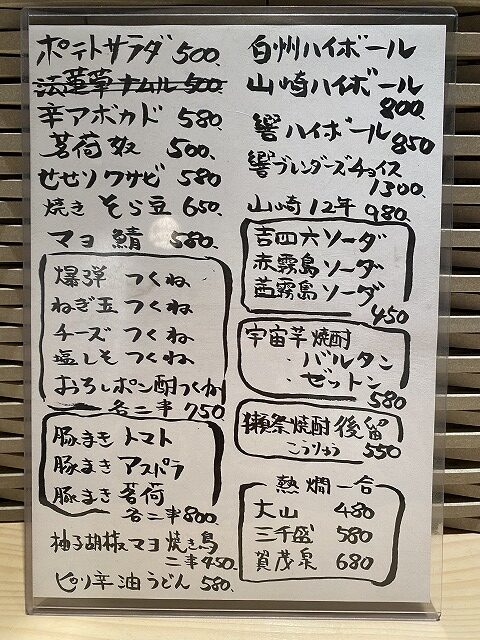 ポテトサラダ 500.
法蓮草ナムル 500.
辛アボカド 580.
茗荷奴 500.
せせりワサビ 580
焼き そら豆 650.
マヨ鯖 580.
爆弾 つくね
ねぎ玉 つくね
チーズ つくね
塩しそ つくね
おろしポン酢つくね
各二串 750
豚まき トマト
豚まき アスパラ
豚まき 茗荷
各二串 800.
柚子胡椒マヨ焼き鳥
二串 450.
ピリ辛油うどん 580.
白州ハイボール
山崎ハイボール
800.
響ハイボール 850
響ブレンダーズチョイス
1300.
山崎12年 980.
吉四六ソーダ
赤霧島ソーダ
茜霧島ソーダ
450
宇宙芋焼酎
・バルタン
・ゼットン
580
獺祭焼酎 後留
こうりゅう 550
熱燗一合
大山 480
三千盛 580
賀茂泉 680